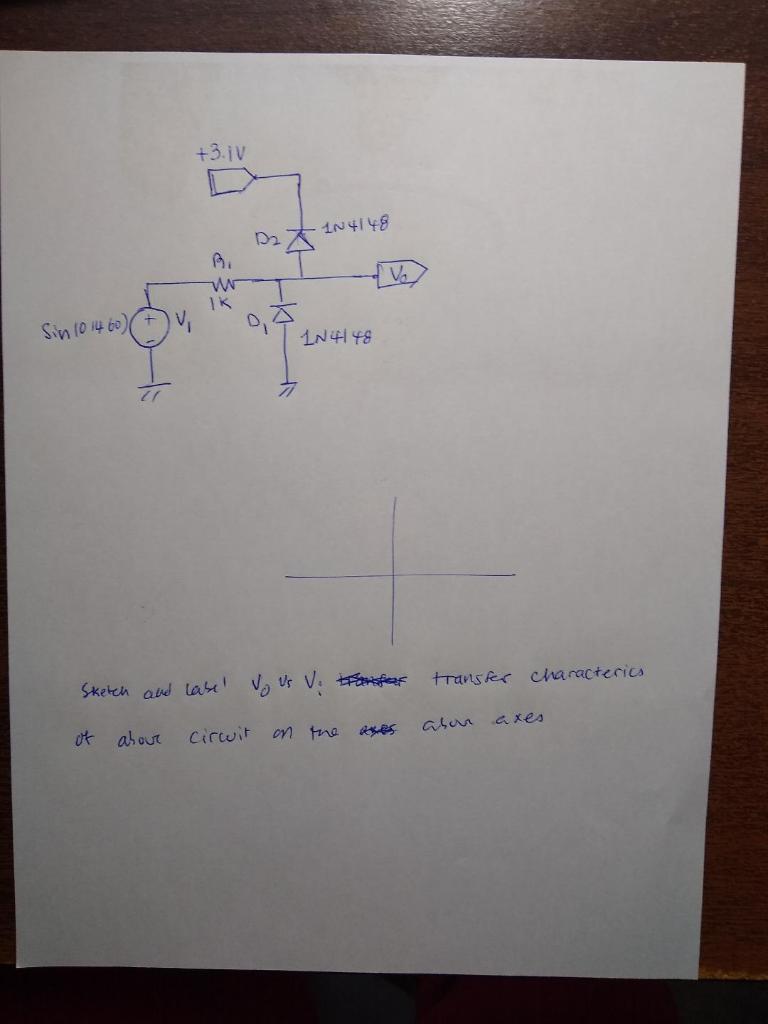 +3.1V
D2 1N4148
R1
1K
V0
Sin(0 14 60)
+
-
V1
D1
1N4148
Sketch and label V0 Vs Vi transfer characterics
of above circuit on the above axes